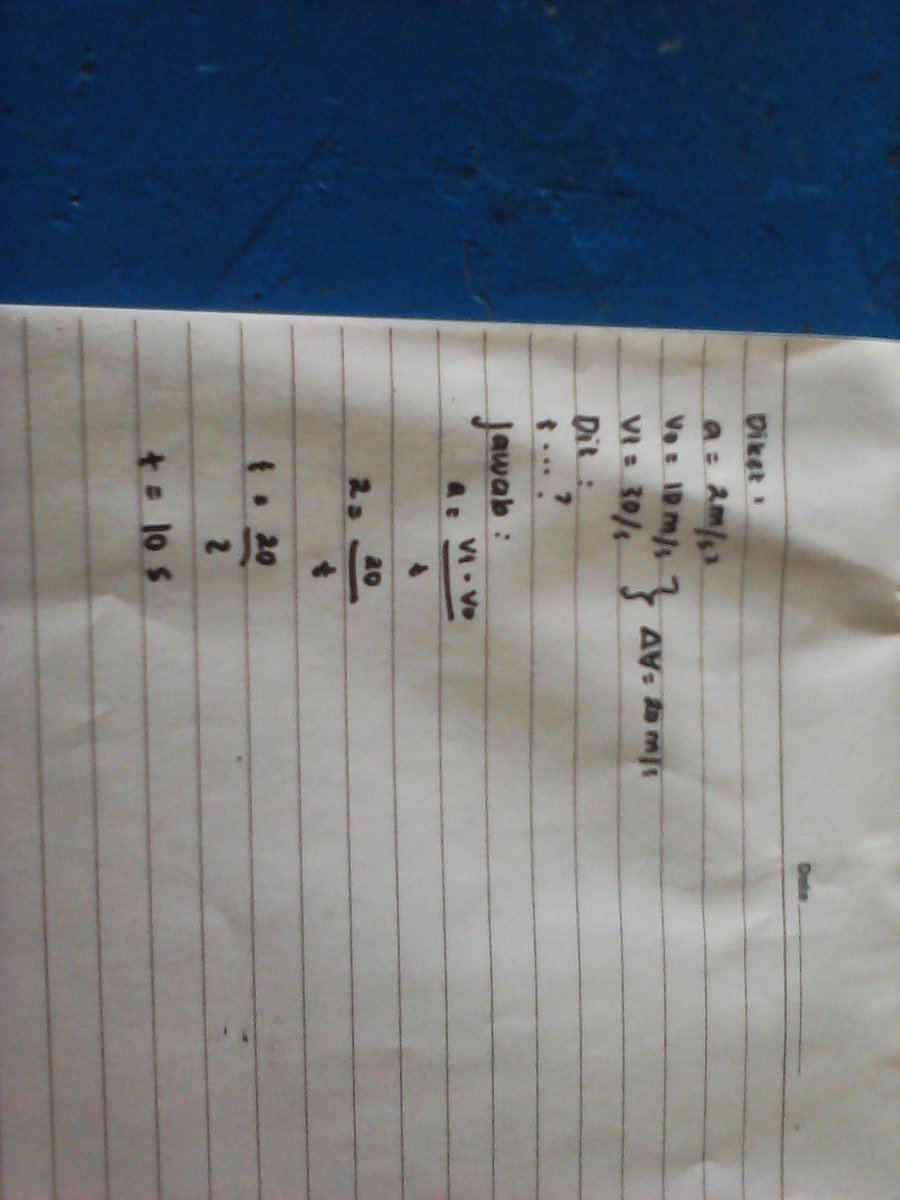 Date
Diket :
a = 2m/s²
V₀ = 10 m/s
V₁ = 30/s } ΔV = 20 m/s
Dit :
t .... ?
Jawab :
a = V₁ - V₀
t
2 = 20
t
t = 20
2
t = 10 s